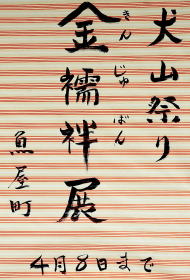 犬山祭り
金襦袢展
きん じゅ ばん
魚屋町
4月8日まで